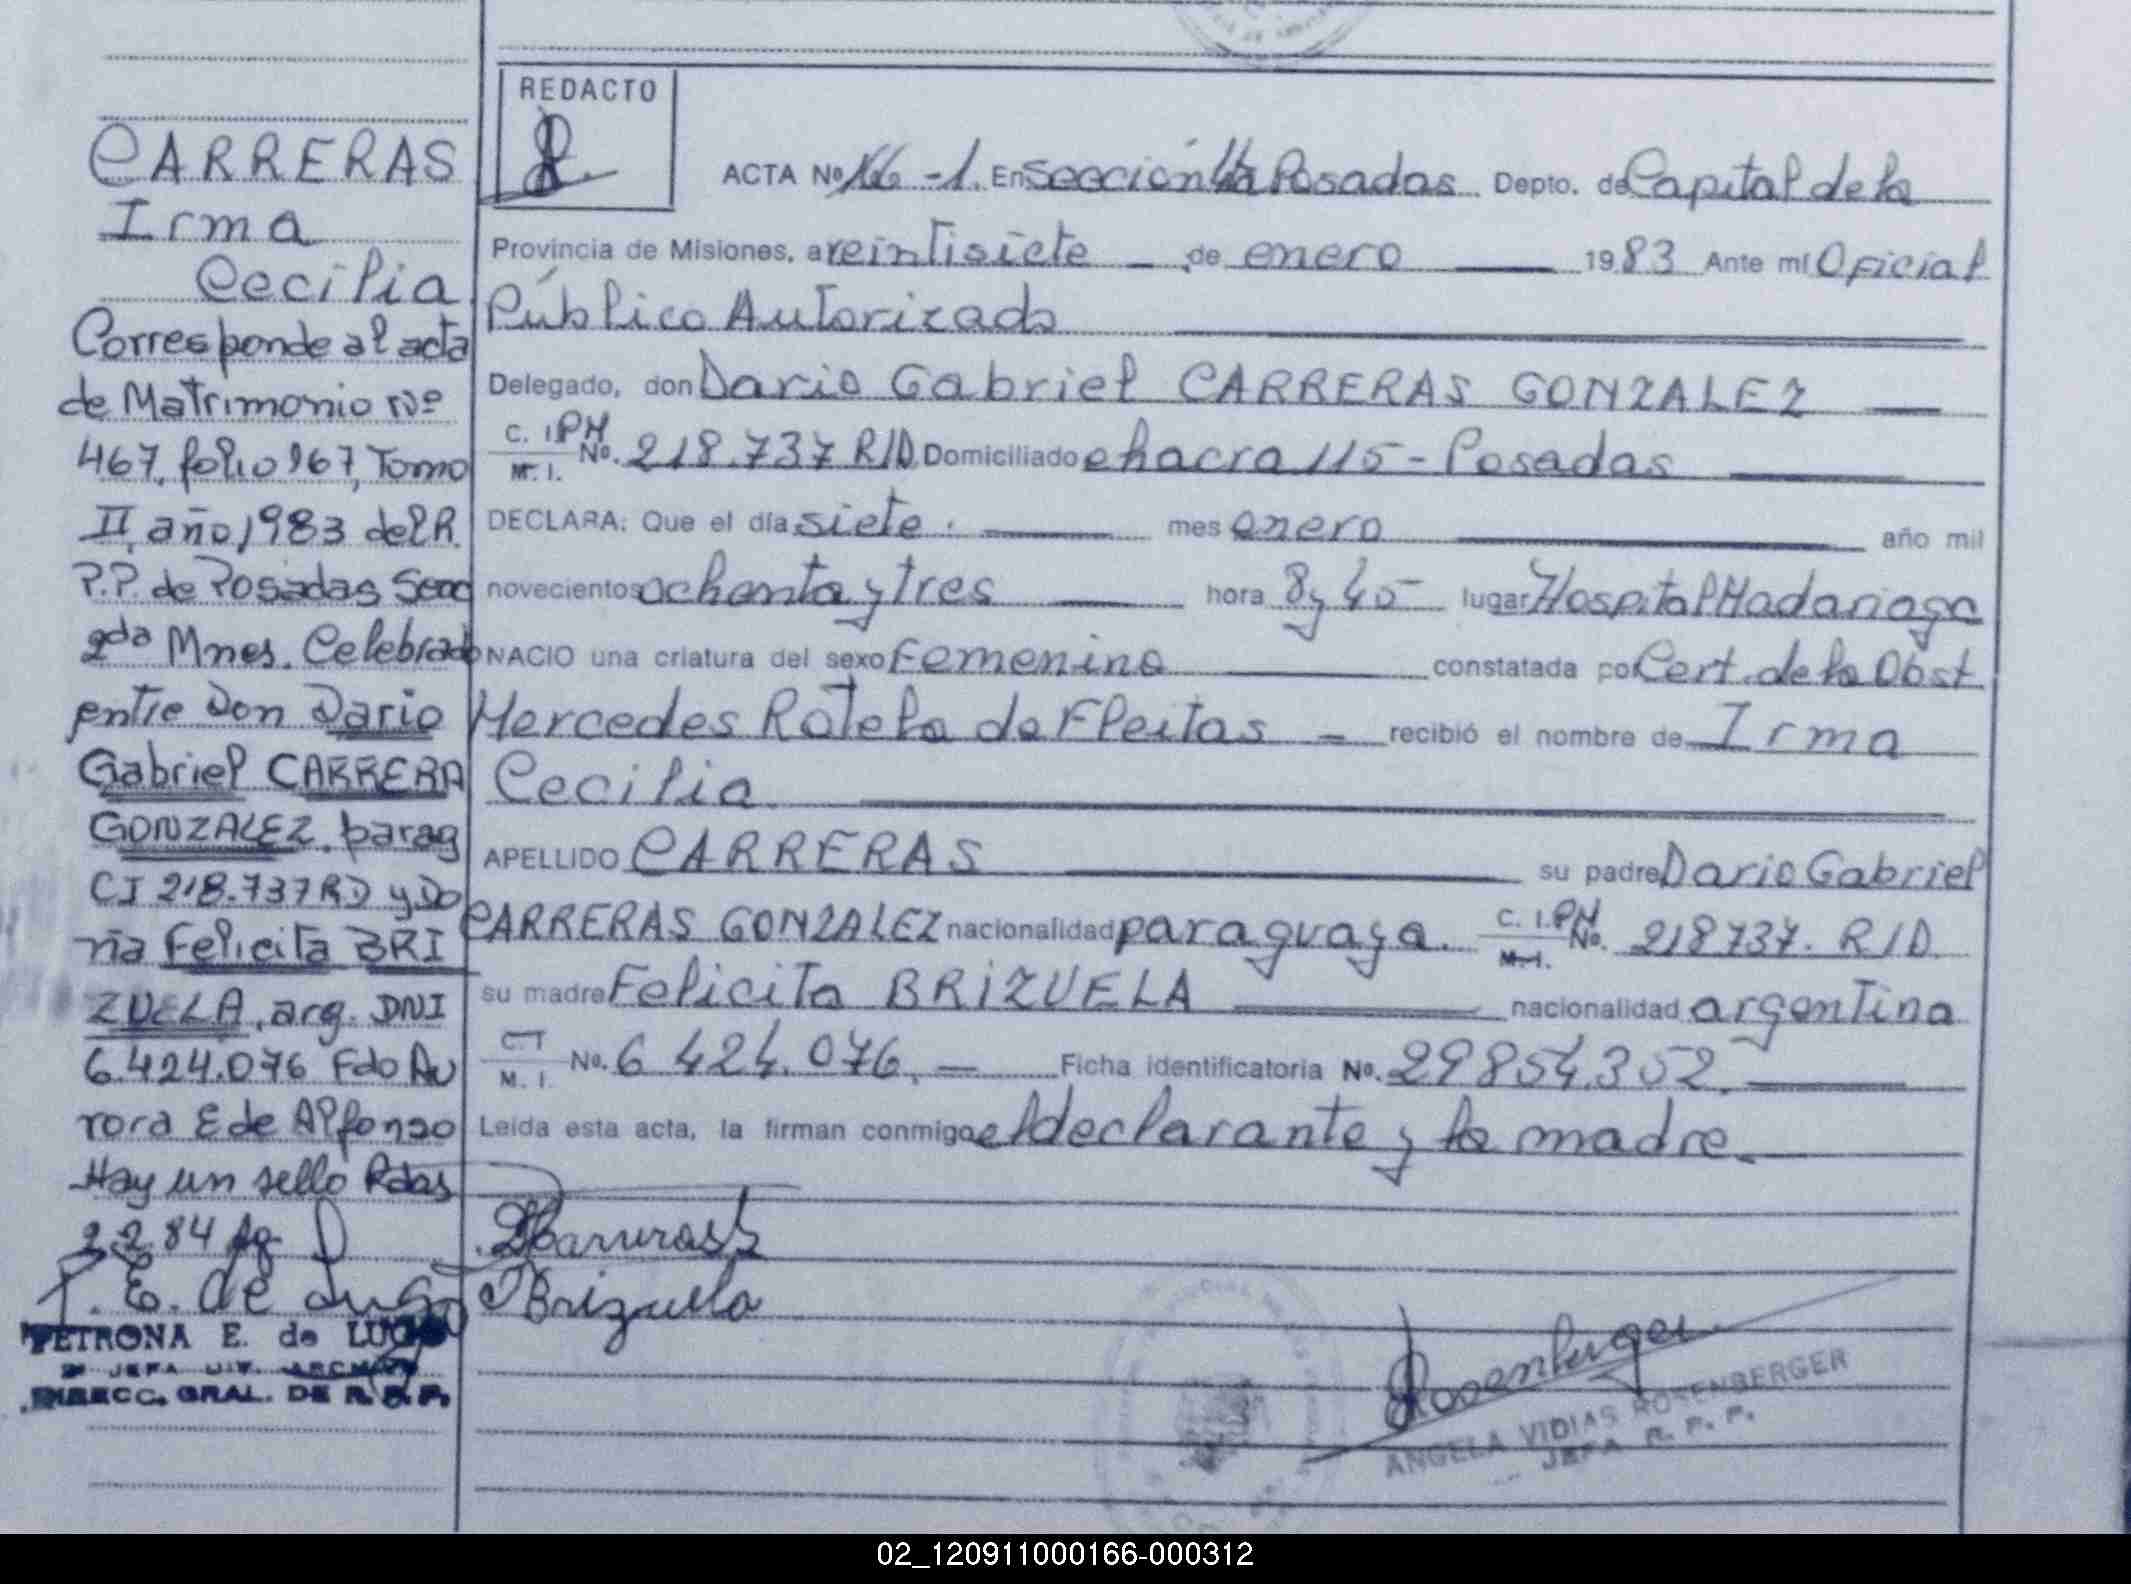 CARRERAS
Irma
Cecilia
Corresponde al acta
de Matrimonio Nº
467, folio 967, Tomo
II, año 1983 del R.
P.P. de Posadas Secc
2da Mnes. Celebrado
entre Don Dario
Gabriel CARRERA
GONZALEZ. parag
CI 218.737 RD y Do
ña Felicita BRI
ZUELA, arg. DNI
6.424.076 Fdo Au
rora E de Alfonso
Hay un sello Pdas
2.2.84
P. E. de Lugo
PETRONA E. de LUGO
JEFA DIV. ARCHIVO
DIRECC. GRAL. DE R. P. P.
REDACTO
ACTA Nº 166 -1. En Sección 4ta Posadas. Depto. de Capital de la
Provincia de Misiones, a veintisiete — de enero — 1983 Ante mí Oficial
Público Autorizado
Delegado, don Dario Gabriel CARRERAS GONZALEZ —
C. I. PN
M. I. No. 218.737 R/D Domiciliado chacra 115 - Posadas
DECLARA: Que el día siete. — mes enero — año mil
novecientos ochenta y tres — hora 8 y 45 lugar Hospital Madariaga
NACIO una criatura del sexo femenino — constatada por Cert. de la Obst
Mercedes Rotela de Fleitas — recibió el nombre de Irma
Cecilia
APELLIDO CARRERAS — su padre Dario Gabriel
CARRERAS GONZALEZ nacionalidad paraguaya. C. I. PN M. I. No. 218737. R/D.
su madre Felicita BRIZUELA — nacionalidad argentina
C. I. M. I. No. 6 424.076. — Ficha identificatoria No. 29854.352. —
Leída esta acta, la firman conmigo el declarante y la madre.
Brizuela
Rosenberger
ANGELA VIDIAS ROSENBERGER
JEFA R. P. P.
02_120911000166-000312